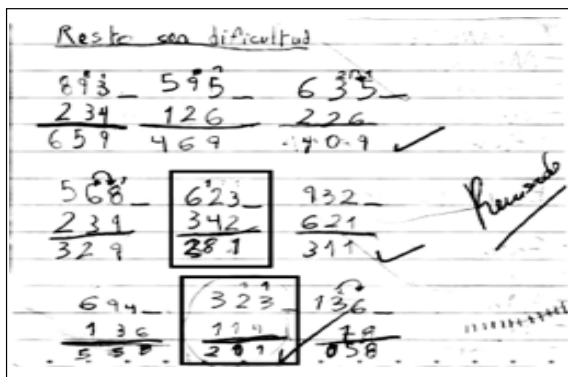 Resta con dificultad
893_ 595_ 635_
234 126 226
659 469 409
568_ 623_ 932_
239 342 621
329 281 311
Revisado
694_ 323_ 136_
136 114 78
558 058